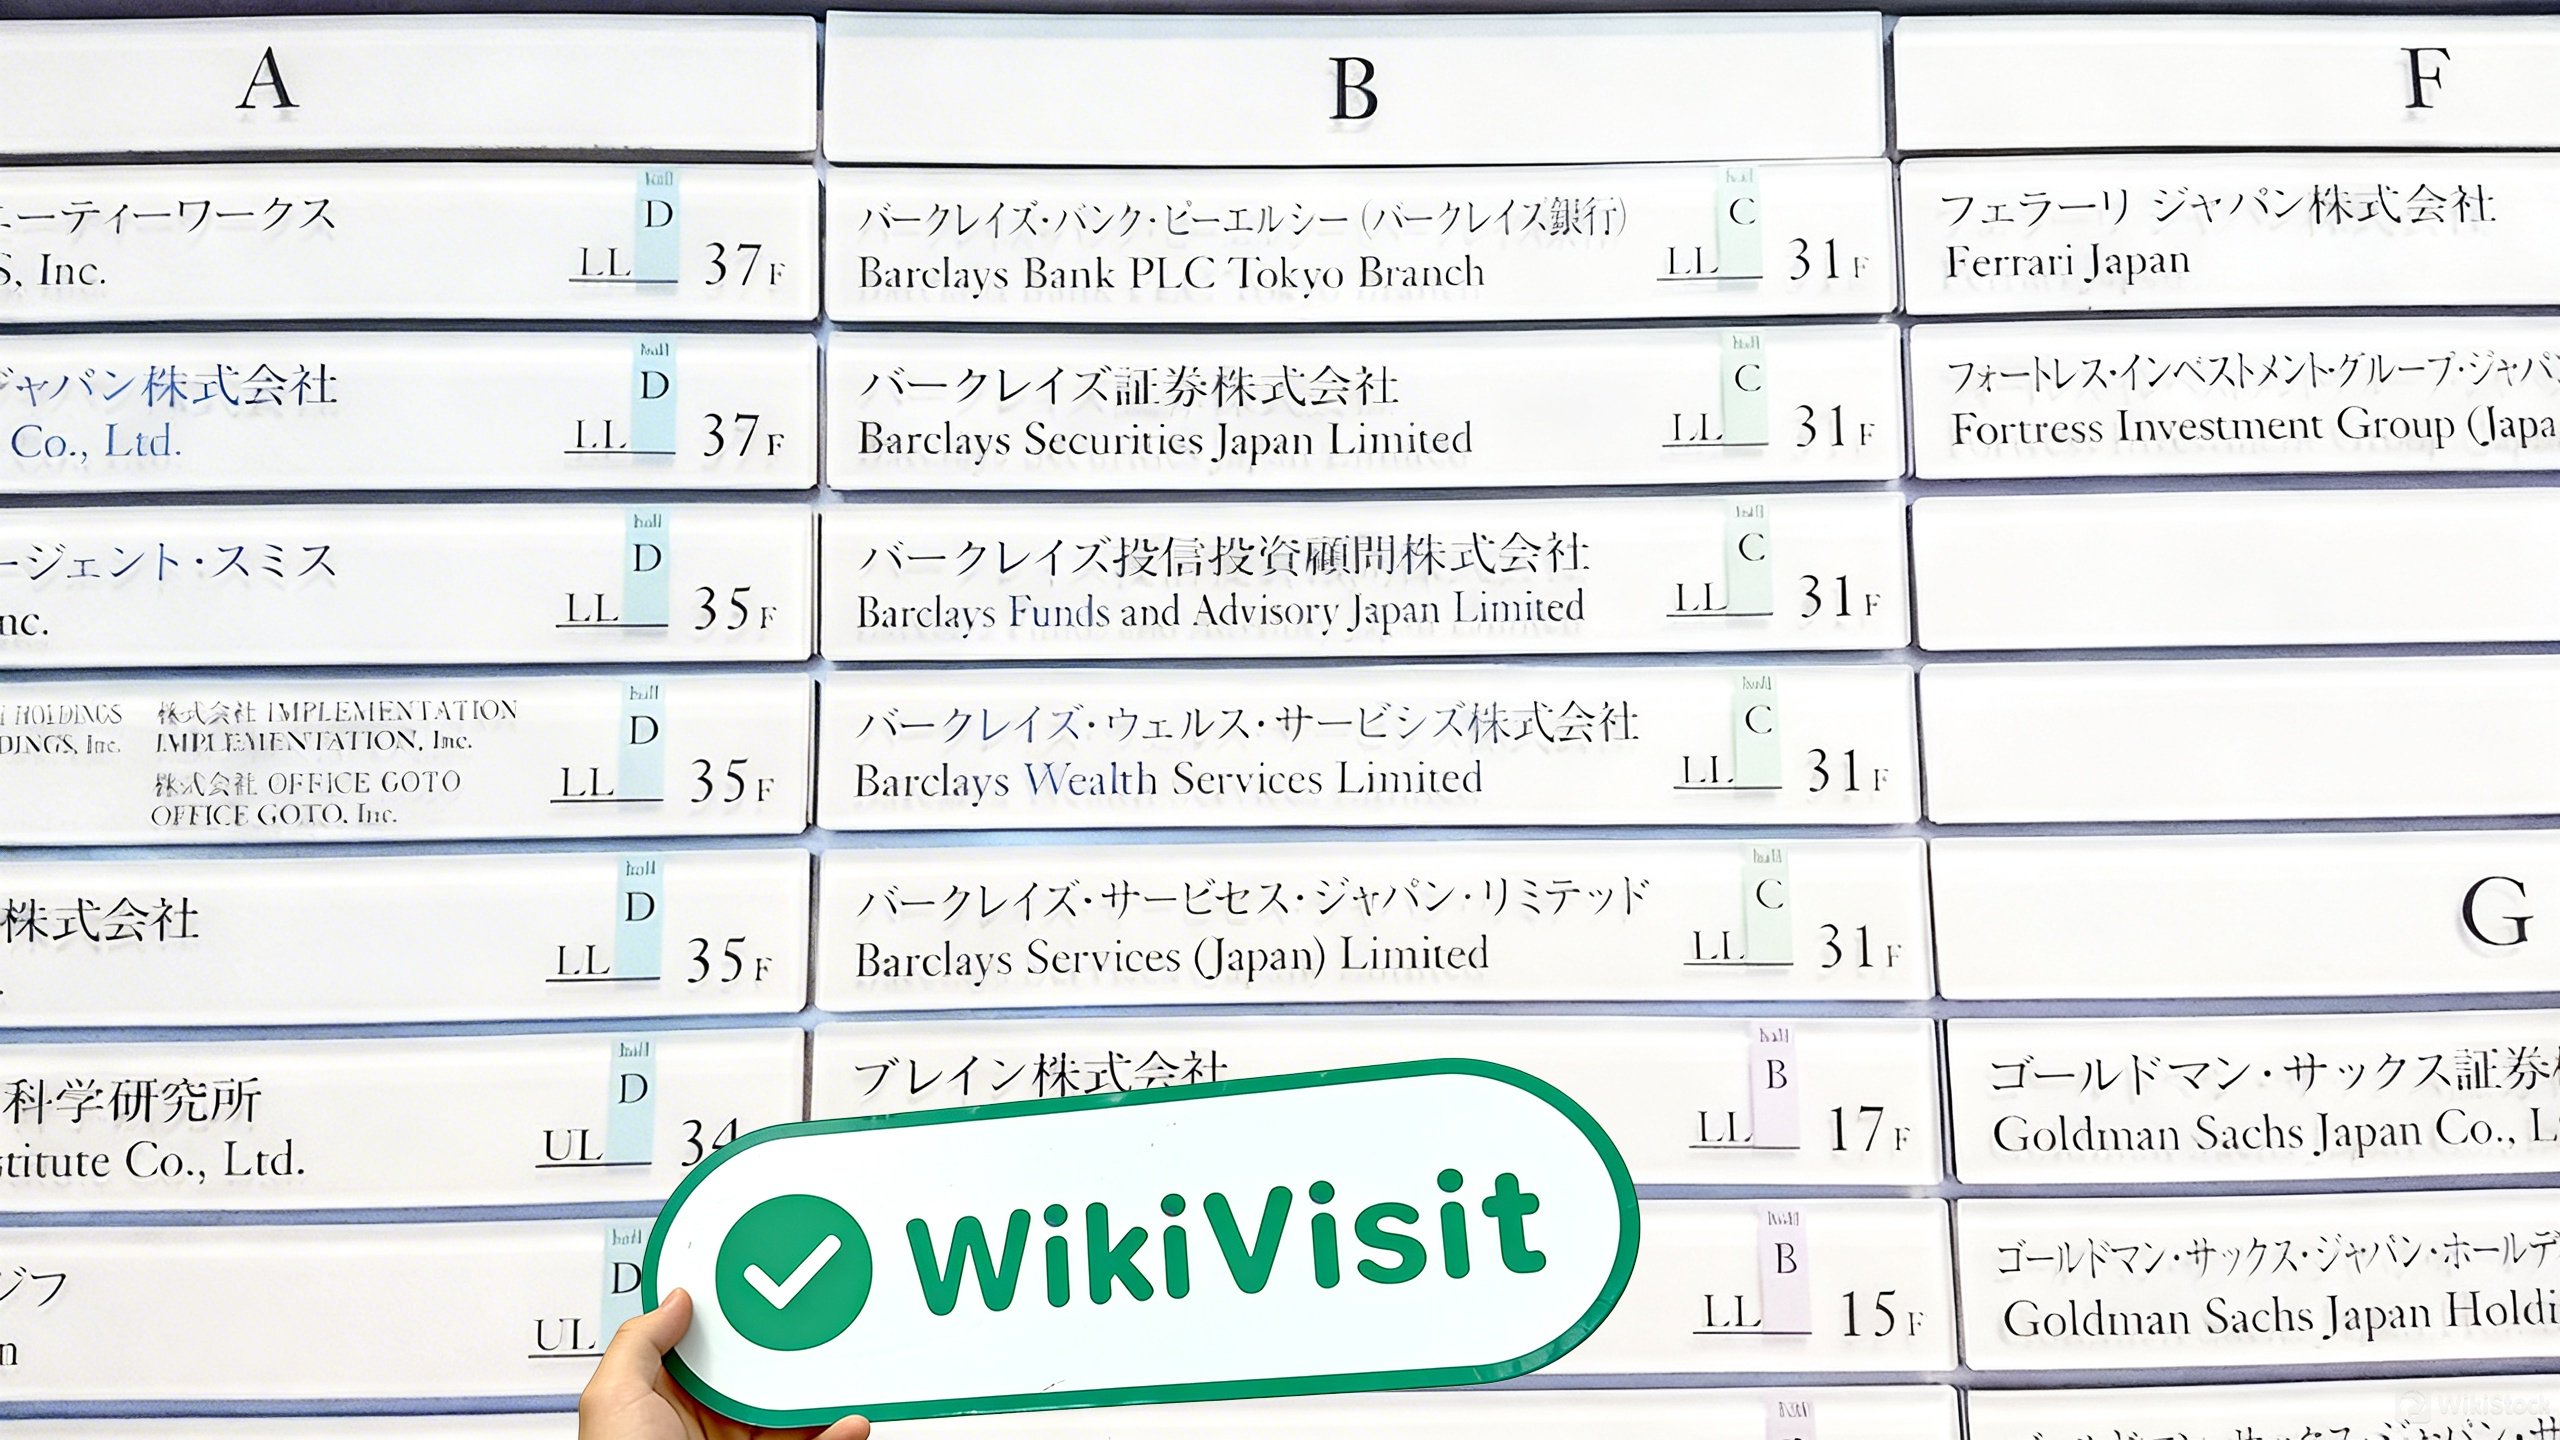 A
ーティーワークス
S, Inc.
D
LL 37F
ジャパン株式会社
Co., Ltd.
D
LL 37F
ージェント・スミス
nc.
D
LL 35F
HOLDINGS
DINGS, Inc.
株式会社 IMPLEMENTATION
IMPLEMENTATION, Inc.
株式会社 OFFICE GOTO
OFFICE GOTO, Inc.
D
LL 35F
株式会社
D
LL 35F
科学研究所
stitute Co., Ltd.
D
UL 34
ジフ
n
D
UL
B
バークレイズ・バンク・ピーエルシー(バークレイズ銀行)
Barclays Bank PLC Tokyo Branch
C
LL 31F
バークレイズ証券株式会社
Barclays Securities Japan Limited
C
LL 31F
バークレイズ投信投資顧問株式会社
Barclays Funds and Advisory Japan Limited
C
LL 31F
バークレイズ・ウェルス・サービシズ株式会社
Barclays Wealth Services Limited
C
LL 31F
バークレイズ・サービセス・ジャパン・リミテッド
Barclays Services (Japan) Limited
C
LL 31F
ブレイン株式会社
B
LL 17F
B
LL 15F
F
フェラーリ ジャパン株式会社
Ferrari Japan
フォートレス・インベストメント・グループ・ジャパン
Fortress Investment Group (Japa
G
ゴールドマン・サックス証券
Goldman Sachs Japan Co., L
ゴールドマン・サックス・ジャパン・ホールデ
Goldman Sachs Japan Holdi
WikiVisit
WikiStock